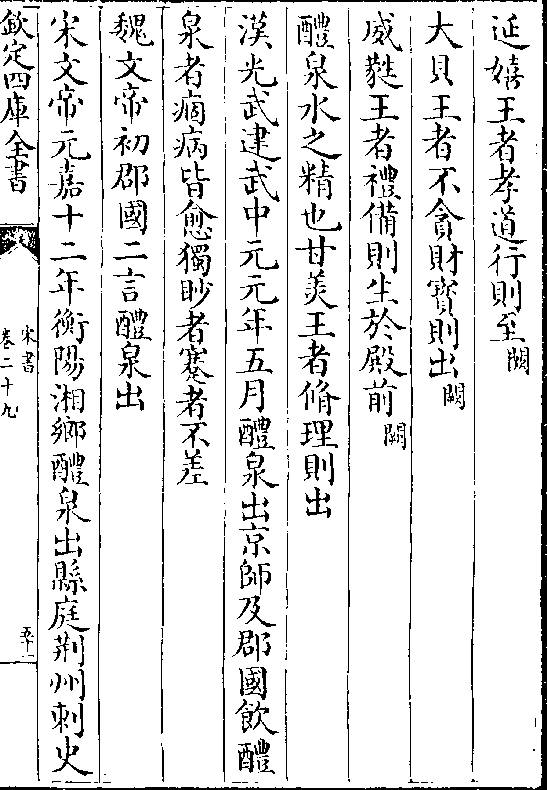 延嬉王者孝道行則至闕
大貝王者不貪財寳則出闕
威蕤王者禮備則生於殿前闕
醴泉水之精也甘美王者脩理則出
漢光武建武中元元年五月醴泉出京師及郡國飲醴
泉者痼病皆愈獨眇者蹇者不差
魏文帝初郡國二言醴泉出
宋文帝元嘉十二年衡陽湘鄉醴泉出縣庭荆州刺史
欽定四庫全書
宋書
卷二十九
五十一